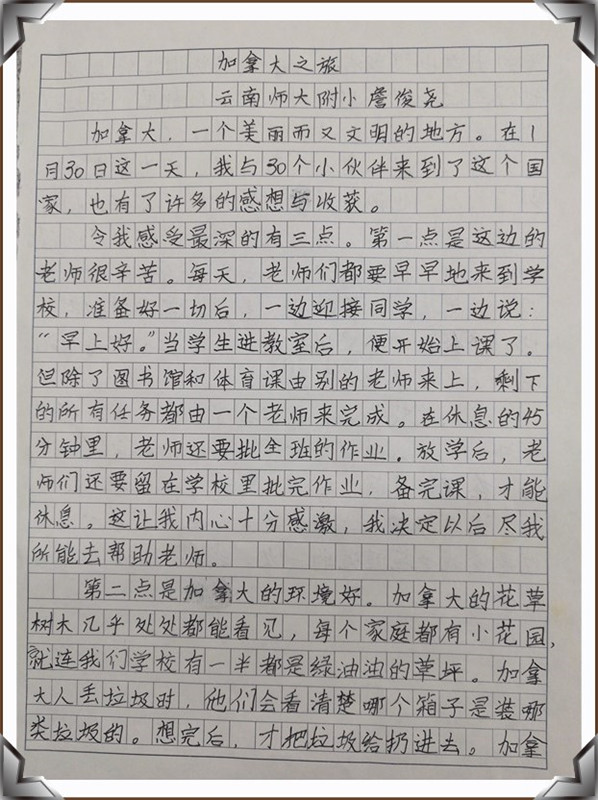 加拿大之旅
云南师大附小詹俊尧
加拿大，一个美丽而又文明的地方。在1
月30日这一天，我与30个小伙伴来到了这个国
家，也有了许多的感想与收获。
令我感受最深的有三点。第一点是这边的
老师很辛苦。每天，老师们都要早早地来到学
校，准备好一切后，一边迎接同学，一边说：
“早上好。”当学生进教室后，便开始上课了。
但除了图书馆和体育课由别的老师来上，剩下
的所有任务都由一个老师来完成。在休息的45
分钟里，老师还要批全班的作业。放学后，老
师们还要留在学校里批完作业，备完课，才能
休息。这让我内心十分感激，我决定以后尽我
所能去帮助老师。
第二点是加拿大的环境好。加拿大的花草
树木几乎处处都能看见，每个家庭都有小花园，
就连我们学校有一半都是绿油油的草坪。加拿
大人丢垃圾时，他们会看清楚哪个箱子是装哪
类垃圾的。想完后，才把垃圾给扔进去。加拿